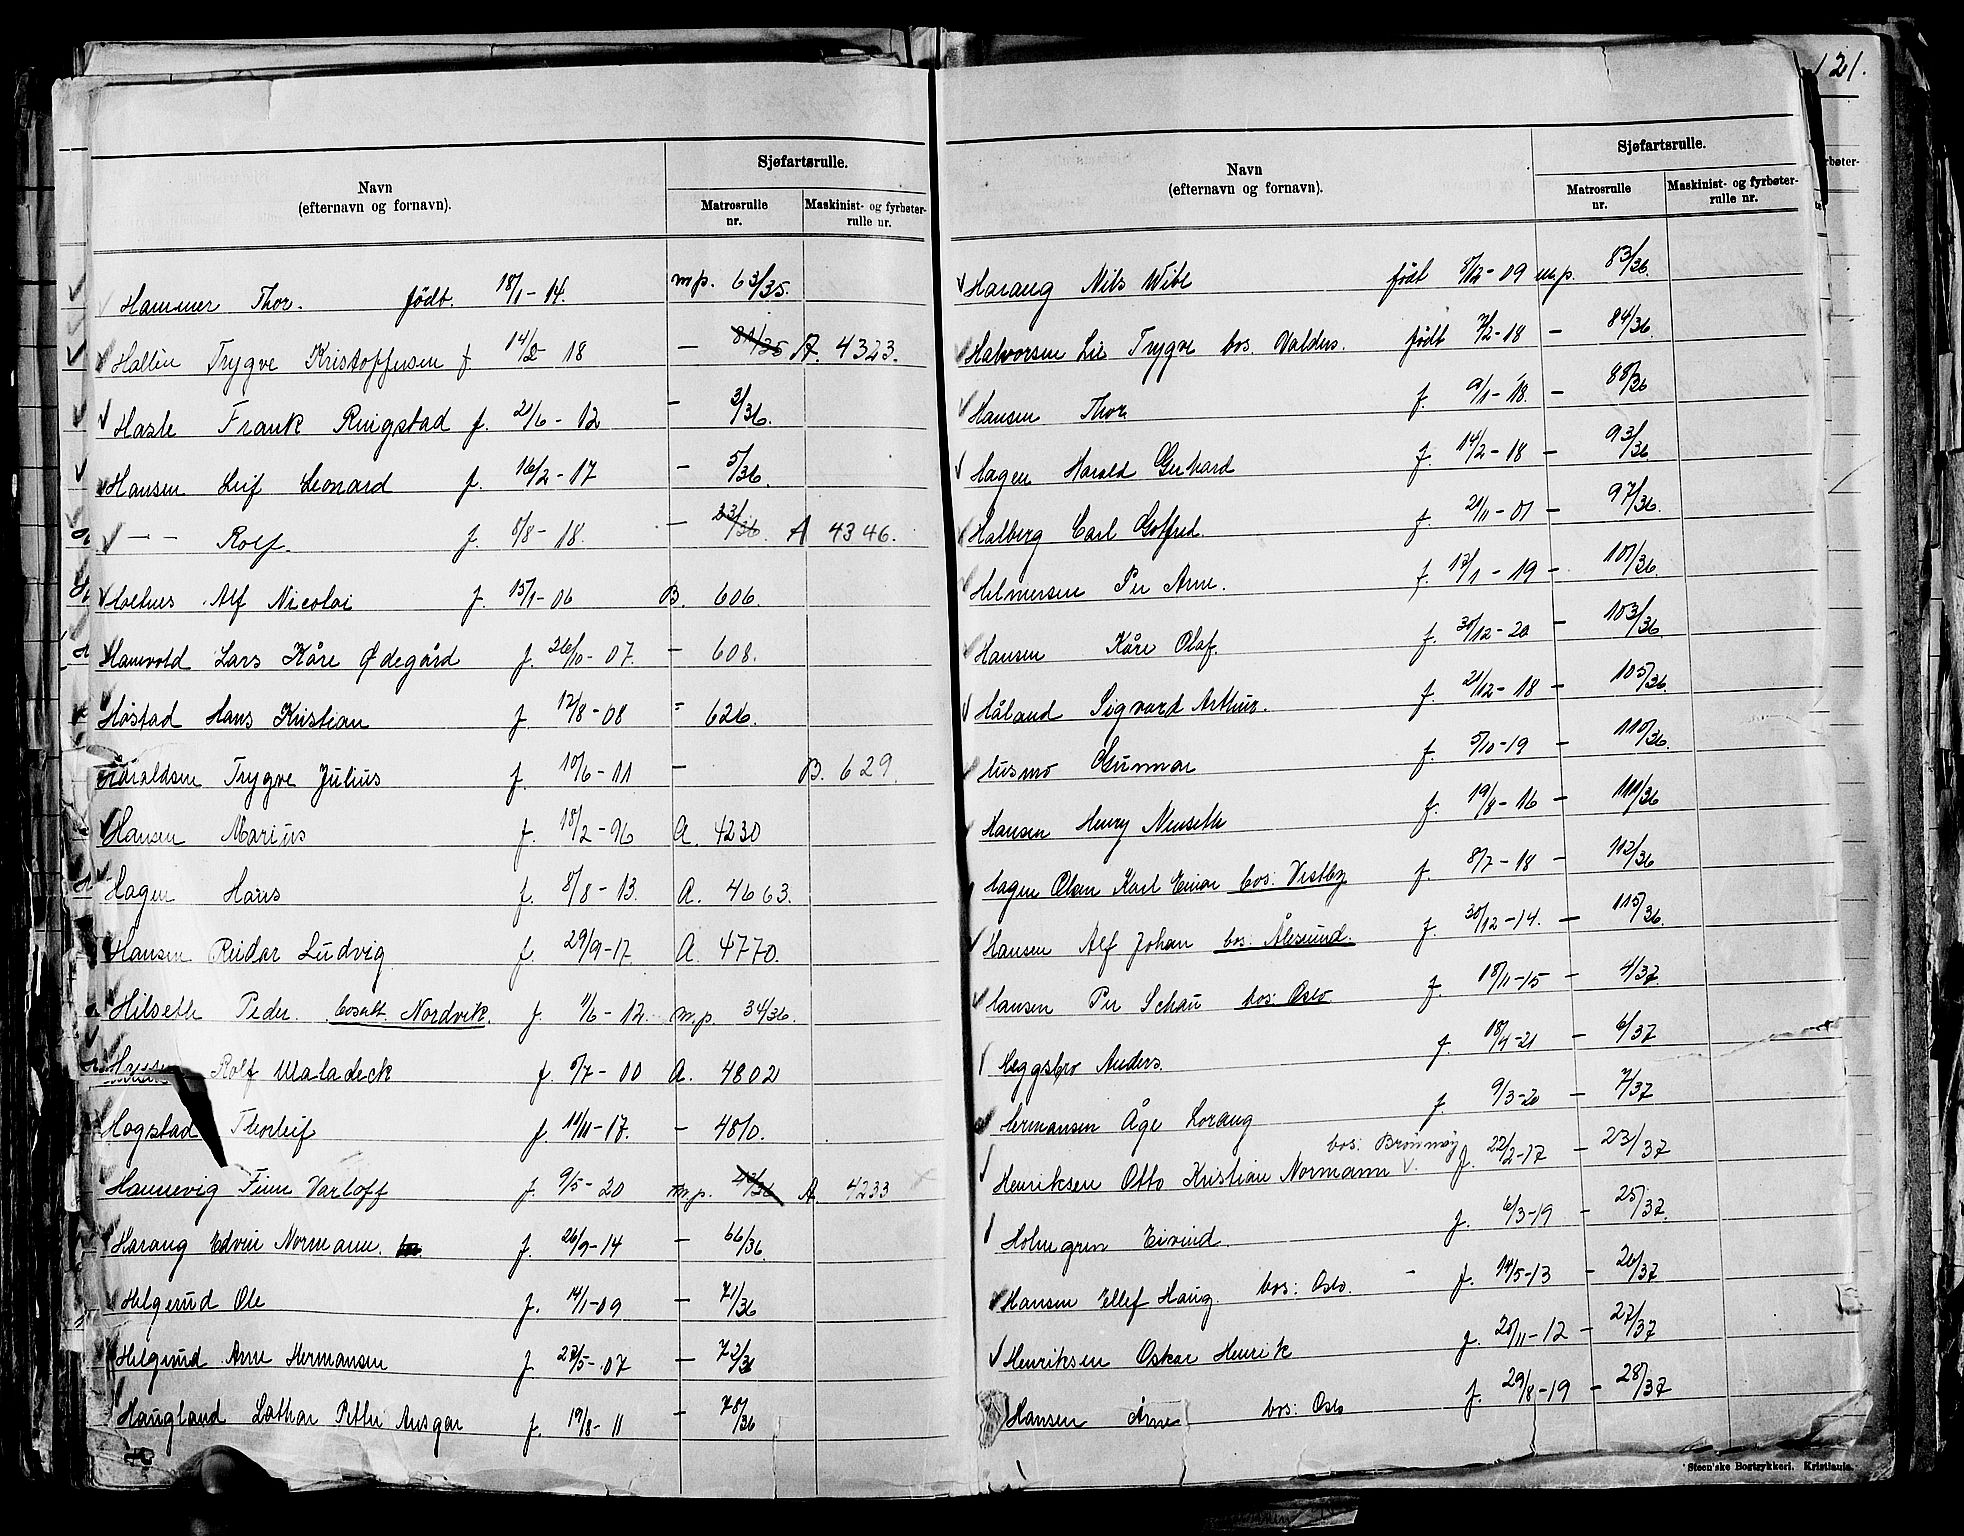 121.
Navn
(efternavn og fornavn).
Sjøfartsrulle.
Matrosrulle nr.
Maskinist- og fyrbøter-rulle nr.
Hammer Thor. født. 18/1-14. m.p. 63/35.
Hallin Trygve Kristoffersen f 14/2-18 — 81/35 A. 4323.
Hasle Frank Ringstad f. 21/6-12 — 3/36.
Hansen Leif Leonard f. 16/2-17 — 5/36.
— — Rolf. f. 8/8-18. — 23/36. A 4346.
Holtnes Alf Nicolai f. 15/1-06 B. 606.
Hanevold Lars Kåre Ødegård f. 26/10-07. — 608.
Høstad Hans Kristian f 12/8-08 = 626.
Haraldsen Trygve Julius f. 10/6-11 — B. 629.
Hansen Marius f. 18/2-96 A. 4230
Hagen Hans f. 8/8-13. A. 4663.
Hansen Reidar Ludvig f. 29/9-17. A. 4770.
Hilseth Peder. bosatt. Nordvik. f 1/6-12. m.p. 34/36.
Hansen Rolf Maladeck f. 5/7-00 A. 4802
Hogstad Thorleif f. 11/11-17. — 4810.
Hannevig Finn Varloff f. 9/5-20 m.p. 42/36 A. 4233
Harang Edvin Normann. f. 26/9-14 — 66/36.
Helgerud Ole f. 14/1-09 — 71/36
Helgerud Arne Hermansen f 27/5-07 — 72/36
Haugland Lathar Petter Ansgar f. 19/8-11 — 78/36
Navn
(efternavn og fornavn).
Sjøfartsrulle.
Matrosrulle nr.
Maskinist- og fyrbøter-rulle nr.
Harang Nils Wibe født 8/12-09 m.p. 83/36.
Halvorsen Lie Trygve bos. Valders. født 7/2-18 — 84/36.
Hansen Thor f. 9/1-18. — 88/36
Hagen Harald Gerhard f. 14/2-18 — 93/36
Halberg Carl Gotfred. f 21/11-01 — 97/36.
Helmersen Per Arne. f. 13/1-19 — 101/36.
Hansen Kåre Olaf. f. 30/12-20 — 103/36
Håland Sigvard Arthur. f. 21/12-18 — 105/36.
Husmo Gunnar f. 5/10-19 — 110/36.
Hansen Henry Neuseth f. 19/8-16 — 111/36
Hagen Olsen Karl Einar bos: Vestby f. 8/7-18 — 112/36
Hansen Alf Johan bos: Ålesund. f. 30/12-14. — 115/36.
Hansen Per Schau bos: Oslo f. 18/11-15 — 4/37
Heggsbro Anders. f. 18/4-21 — 6/37
Hermansen Åge Lorang f. 9/3-20 — 7/37
bos: Brønnøy
Henriksen Otto Kristian Normann f. 22/2-17 — 23/37
Holmgren Eivind. f. 6/3-19 — 25/37.
Hansen Ellef Haug. bos: Oslo. — f. 14/5-13 — 26/37
Henriksen Oskar Henrik f. 20/11-12 — 27/37
Hansen Arne bos: Oslo f. 29/8-19 — 28/37
Steen'ske Bogtrykkeri. Kristiania.